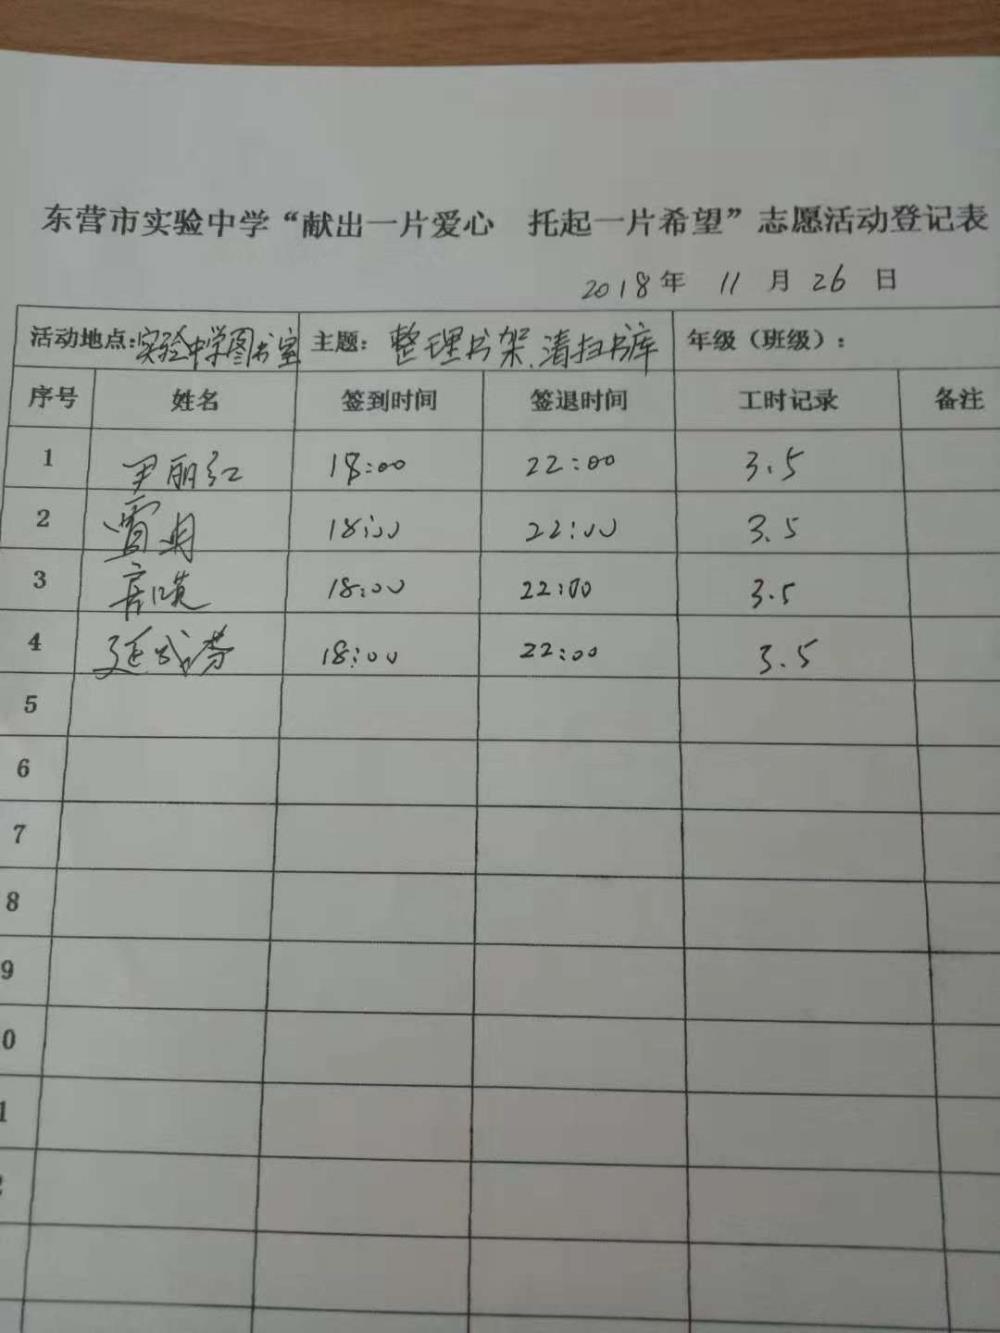 东营市实验中学“献出一片爱心 托起一片希望”志愿活动登记表
2018年 11 月 26 日
活动地点:实验中学图书室 主题：整理书架、清扫书库 年级（班级）：
序号 姓名 签到时间 签退时间 工时记录 备注
1 尹丽红 18:00 22:00 3.5
2 18:00 22:00 3.5
3 18:00 22:00 3.5
4 延成芬 18:00 22:00 3.5
5
6
7
8
9
0
1
2